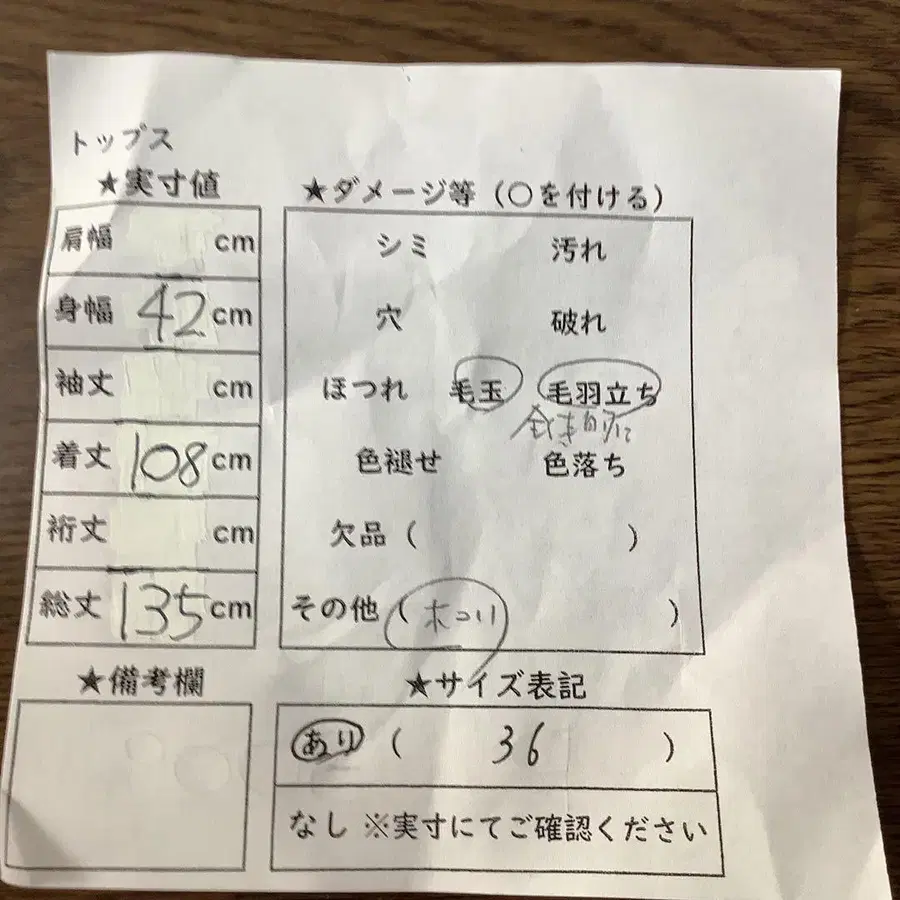 トップス
★実寸値
肩幅 cm
身幅 42 cm
袖丈 cm
着丈 108 cm
裄丈 cm
総丈 135 cm
★備考欄
★ダメージ等（〇を付ける）
シミ 汚れ
穴 破れ
ほつれ 毛玉 毛羽立ち
全体的に
色褪せ 色落ち
欠品（ ）
その他（ホコリ ）
★サイズ表記
あり（ 36 ）
なし ※実寸にてご確認ください